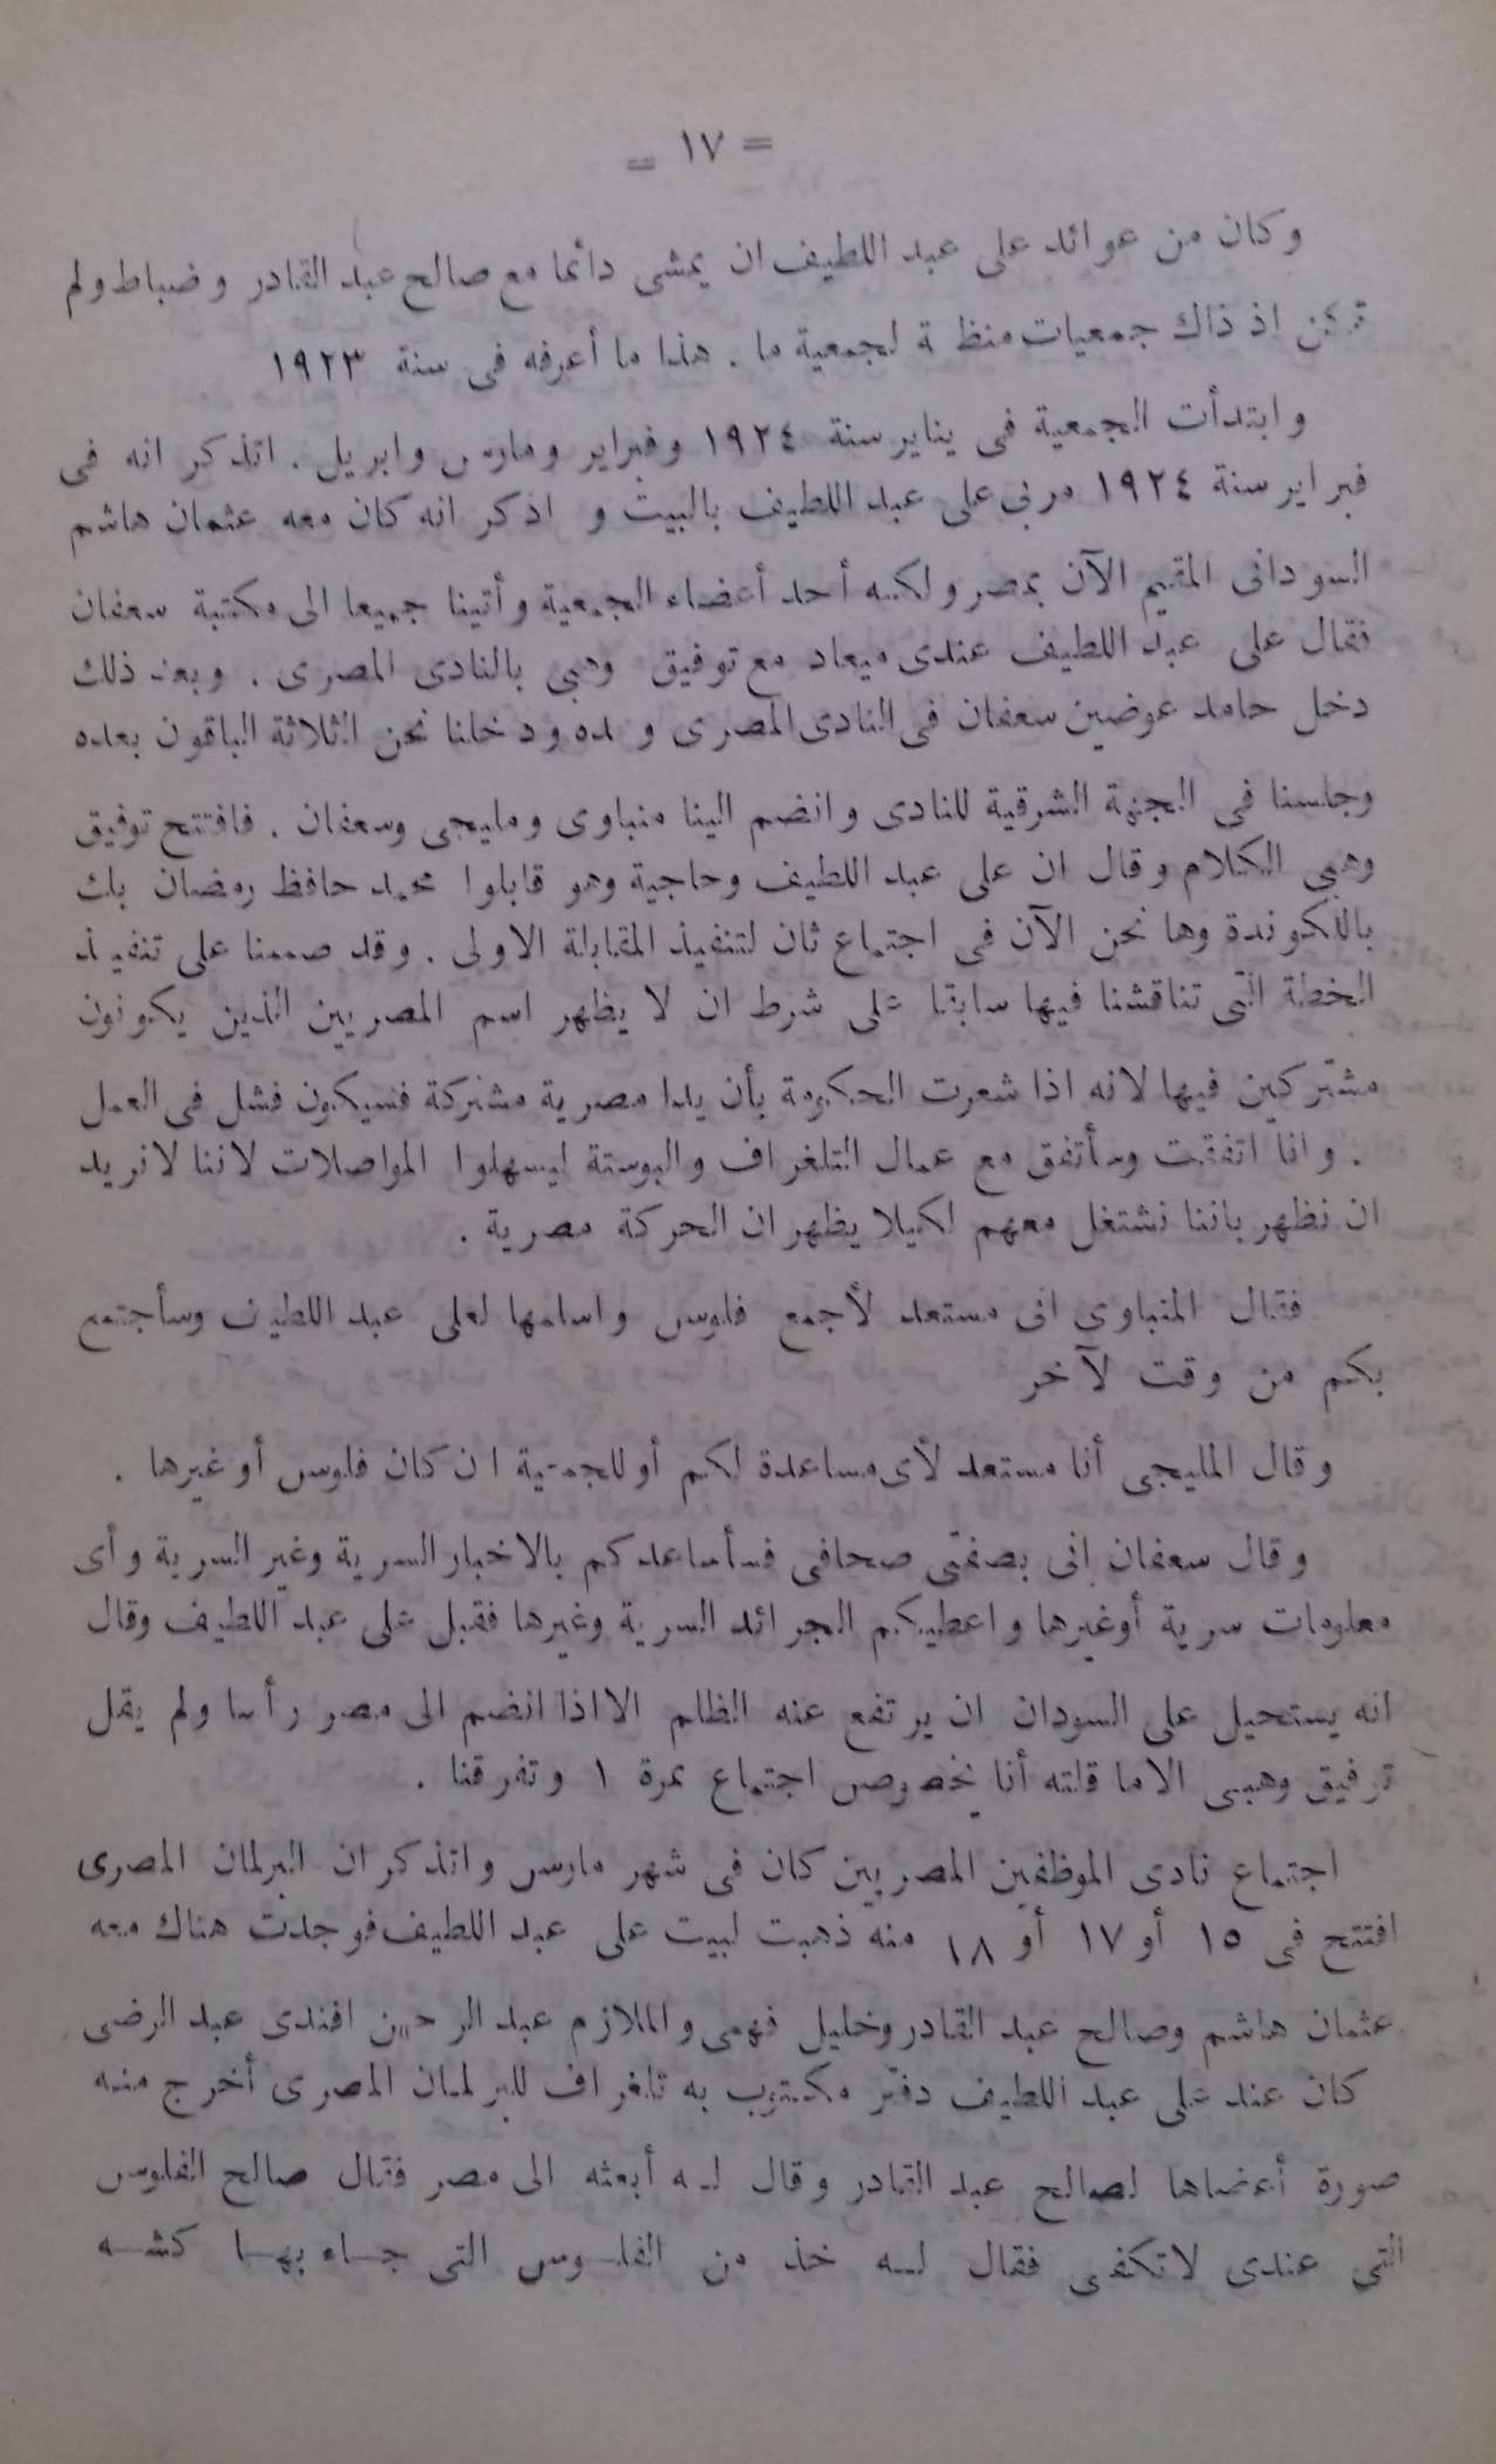 = ١٧ =
وكان من عوائد على عبد اللطيف ان يمشى دائما مع صالح عبد القادر وضباط ولم
تكن اذ ذاك جمعيات منظمة لجمعية ما . هذا ما أعرفه فى سنة ١٩٢٣
وابتدأت الجمعية فى يناير سنة ١٩٢٤ وفبراير ومارس وابريل . اتذكر انه فى
فبراير سنة ١٩٢٤ مر بى على عبد اللطيف بالبيت و اذكر انه كان معه عثمان هاشم
السودانى المقيم الآن بمصر ولكنه أحد أعضاء الجمعية وأتينا جميعا الى مكتبة سعفان
فقال على عبد اللطيف عندى ميعاد مع توفيق وهبى بالنادى المصرى . وبعد ذلك
دخل حامد عوضين سعفان فى النادى المصرى وحده ودخلنا نحن الثلاثة الباقون بعده
وجلسنا فى الجنهة الشرقية للنادى وانضم الينا منباوى ومليجى وسعفان . فافتتح توفيق
وهبى الكلام وقال ان على عبد اللطيف وحاجية وهو قابلوا محمد حافظ رمضان بك
باللكوندة وها نحن الآن فى اجتماع ثان لتنفيذ المقابلة الاولى . وقد صممنا على تنفيذ
الخطة التى تناقشنا فيها سابقا على شرط ان لا يظهر اسم المصريين الذين يكونون
مشتركين فيها لانه اذا شعرت الحكومة بأن يدا مصرية مشتركة فسيكون فشل فى العمل
. وانا اتفقت وسأتفق مع عمال التلغراف والبوستة ليسهلوا المواصلات لاننا لا نريد
ان نظهر باننا نشتغل معهم لكيلا يظهر ان الحركة مصرية .
فقال المنباوى انى مستعد لأجمع فلوس واسلمها لعلى عبد اللطيف وسأجتمع
بكم من وقت لآخر
وقال المليجى أنا مستعد لأى مساعدة لكم أو للجمعية ان كان فلوس أو غيرها .
وقال سعفان انى بصفتى صحافى فسأساعدكم بالاخبار السرية وغير السرية وأى
معلومات سرية أوغيرها واعطيكم الجرائد السرية وغيرها فقبل على عبد اللطيف وقال
انه يستحيل على السودان ان يرتفع عنه الظلم الا اذا انضم الى مصر رأسا ولم يقل
توفيق وهبى الا ما قلته أنا بخصوص اجتماع نمرة ١ وتفرقنا .
اجتماع نادى الموظفين المصريين كان فى شهر مارس واتذكر ان البرلمان المصرى
افتتح فى ١٥ أو ١٧ أو ١٨ منه ذهبت لبيت على عبد اللطيف فوجدت هناك معه
عثمان هاشم وصالح عبد القادر وخليل فهمى والملازم عبد الرحمن افندى عبد الرضى
كان عند على عبد اللطيف دفتر مكتوب به تلغراف للبرلمان المصرى أخرج منه
صورة أعضاها لصالح عبد القادر وقال لـه أبعثه الى مصر فقال صالح الفلوس
التى عندى لا تكفى فقال لـه خذ من الفلـوس التى جـاء بهـا كشـه